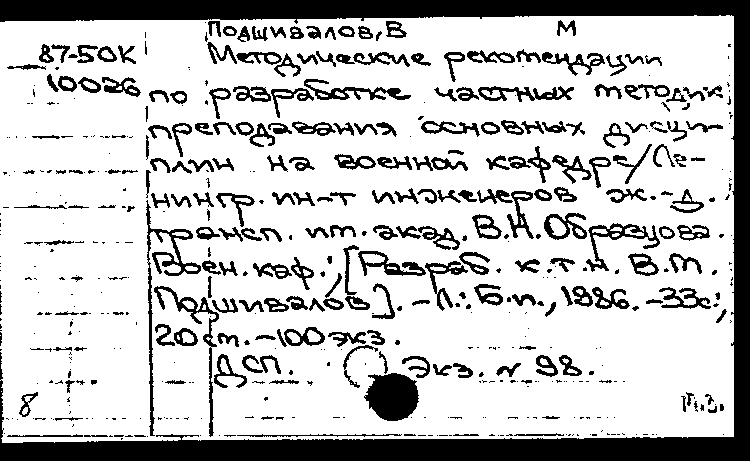 Подшивалов, В М
87-50К Методические рекомендации
10026 по разработке частных методик
преподавания основных дисци-
плин на военной кафедре/Ле-
нингр. ин-т инженеров ж.-д.
трансп. им. акад. В.Н.Образцова.
Воен. каф.; [Разраб. к.т.н. В.М.
Подшивалов]. -Л.: Б.и., 1986. -33с.;
20 см. -100 экз.
ДСП. Экз. № 98.
8